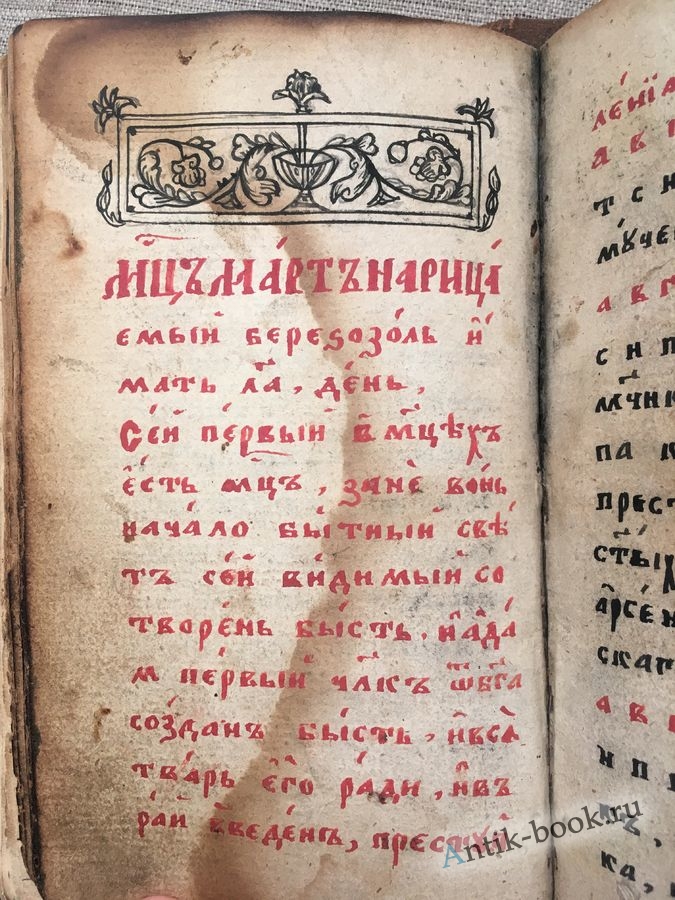 МЦ҃Ъ МА́РТЪ НАРИЦА́
емый береѕозо́ль и҆
мать л҃а, де́нь,
Се́й пе́рвый в̾ мц҃ѣхъ
є҆́сть мц҃ъ, занѐ во́нь
нача́ло бы́тный свѣ́
тъ се́й ви́димый со
творе́нь бы́сть, и҆ А҆да́
м пе́рвый чл҃къ ѿ бг҃а
со́зданъ бы́сть, и҆ всѧ̀
тва́рь є҆гѡ̀ ра́ди, и҆ в̾
ра́й в̾веде́нъ, престꙋпи́
ле́нїѧ
а в г
т с н
мꙋ́че
а в г
с н п
мч҃ник
па к
прест
ст҃ы́х
а҆рсе́н
скаг
а в г
н п
ка,
Antik-book.ru